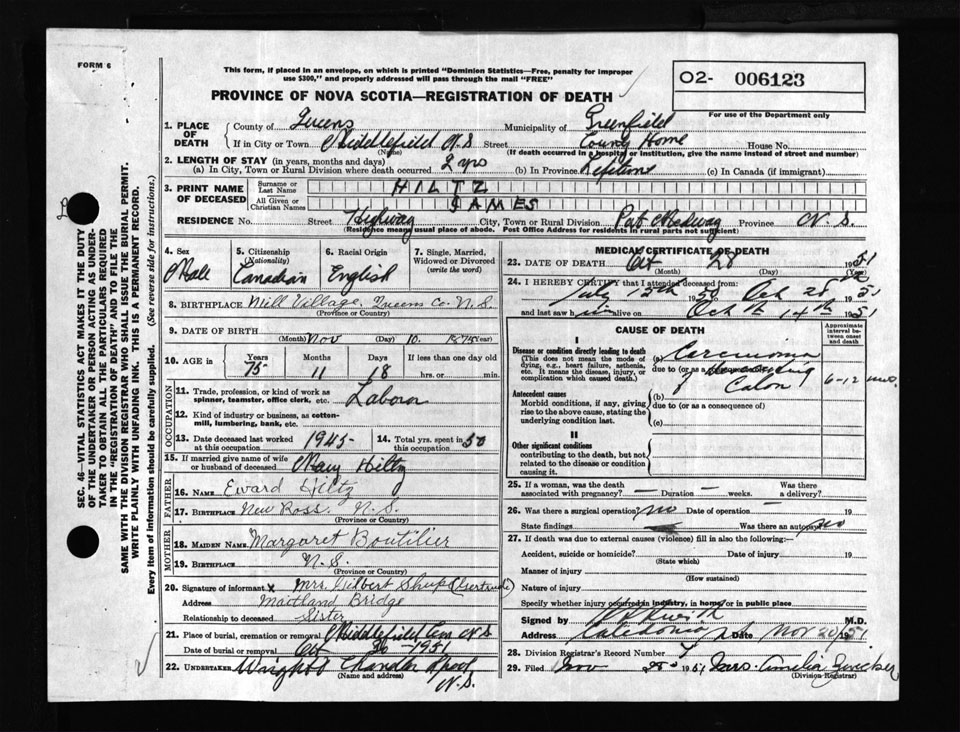 FORM 6
This form, if placed in an envelope, on which is printed "Dominion Statistics—Free, penalty for improper
use $300," and properly addressed will pass through the mail "FREE"
O2- 006123
PROVINCE OF NOVA SCOTIA—REGISTRATION OF DEATH
For use of the Department only
1. PLACE OF DEATH
County of Queens Municipality of Greenfield
If in City or Town Middlefield N.S Street County Home House No.
(Name) (If death occurred in a hospital or institution, give the name instead of street and number)
2. LENGTH OF STAY (in years, months and days)
(a) In City, Town or Rural Division where death occurred 2 yrs (b) In Province Lifetime (c) In Canada (if immigrant)
3. PRINT NAME OF DECEASED
Surname or Last Name HILTZ
All Given or Christian Names JAMES
RESIDENCE No. Street Highway City, Town or Rural Division Port Medway Province N.S.
(Residence means usual place of abode. Post Office Address for residents in rural parts not sufficient)
4. Sex Male
5. Citizenship (Nationality) Canadian
6. Racial Origin English
7. Single, Married, Widowed or Divorced (write the word)
8. BIRTHPLACE Mill Village, Queens Co. N.S.
(Province or Country)
9. DATE OF BIRTH Nov 10. 1875
(Month) (Day) (Year)
10. AGE in Years 75 Months 11 Days 18 If less than one day old
hrs. or min.
OCCUPATION
11. Trade, profession, or kind of work as spinner, teamster, office clerk, etc. Laborer
12. Kind of industry or business, as cotton-mill, lumbering, bank, etc.
13. Date deceased last worked at this occupation 1945
14. Total yrs. spent in this occupation 50
15. If married give name of wife or husband of deceased Mary Hiltz
FATHER
16. NAME Eward Hiltz
17. BIRTHPLACE New Ross. N.S.
(Province or Country)
MOTHER
18. MAIDEN NAME Margaret Boutilier
19. BIRTHPLACE N.S.
(Province or Country)
20. Signature of informant x Mrs. Gilbert (Gertrude)
Address Maitland Bridge
Relationship to deceased Sister
21. Place of burial, cremation or removal Middlefield Cem N.S
Date of burial or removal Oct 30 - 1951
22. UNDERTAKER Chandler
(Name and address)
N.S.
MEDICAL CERTIFICATE OF DEATH
23. DATE OF DEATH Oct 28 1951
(Month) (Day) (Year)
24. I HEREBY CERTIFY that I attended deceased from:
July 15th 1950 Oct 28th 1951
and last saw him alive on Oct 14th 1951
CAUSE OF DEATH
Approximate interval between onset and death
I
Disease or condition directly leading to death
(This does not mean the mode of dying, e.g., heart failure, asthenia, etc. It means the disease, injury, or complication which caused death.)
(a) Carcinoma
due to (or as a consequence of)
of Descending Colon 6-12 mos.
Antecedent causes
Morbid conditions, if any, giving rise to the above cause, stating the underlying condition last.
(b)
due to (or as a consequence of)
(c)
II
Other significant conditions
contributing to the death, but not related to the disease or condition causing it.
25. If a woman, was the death associated with pregnancy? — Duration — weeks. Was there a delivery? —
26. Was there a surgical operation? no Date of operation — 19
State findings — Was there an autopsy? no
27. If death was due to external causes (violence) fill in also the following:
Accident, suicide or homicide? Date of injury 19
(State which)
Manner of injury
(How sustained)
Nature of injury
Specify whether injury occurred in industry, in home or in public place
Signed by M.D.
Address Caledonia N.S. Date Nov 20/1951
28. Division Registrar's Record Number 7
29. Filed Nov 1951 Mrs. Amelia Zwicker
(Division Registrar)
SEC. 46—VITAL STATISTICS ACT MAKES IT THE DUTY
OF THE UNDERTAKER OR PERSON ACTING AS UNDER-
TAKER TO OBTAIN ALL THE PARTICULARS REQUIRED
IN THE "REGISTRATION OF DEATH" AND TO FILE THE
SAME WITH THE DIVISION REGISTRAR WHO SHALL ISSUE THE BURIAL PERMIT.
WRITE PLAINLY WITH UNFADING INK. THIS IS A PERMANENT RECORD.
Every item of information should be carefully supplied. (See reverse side for instructions.)